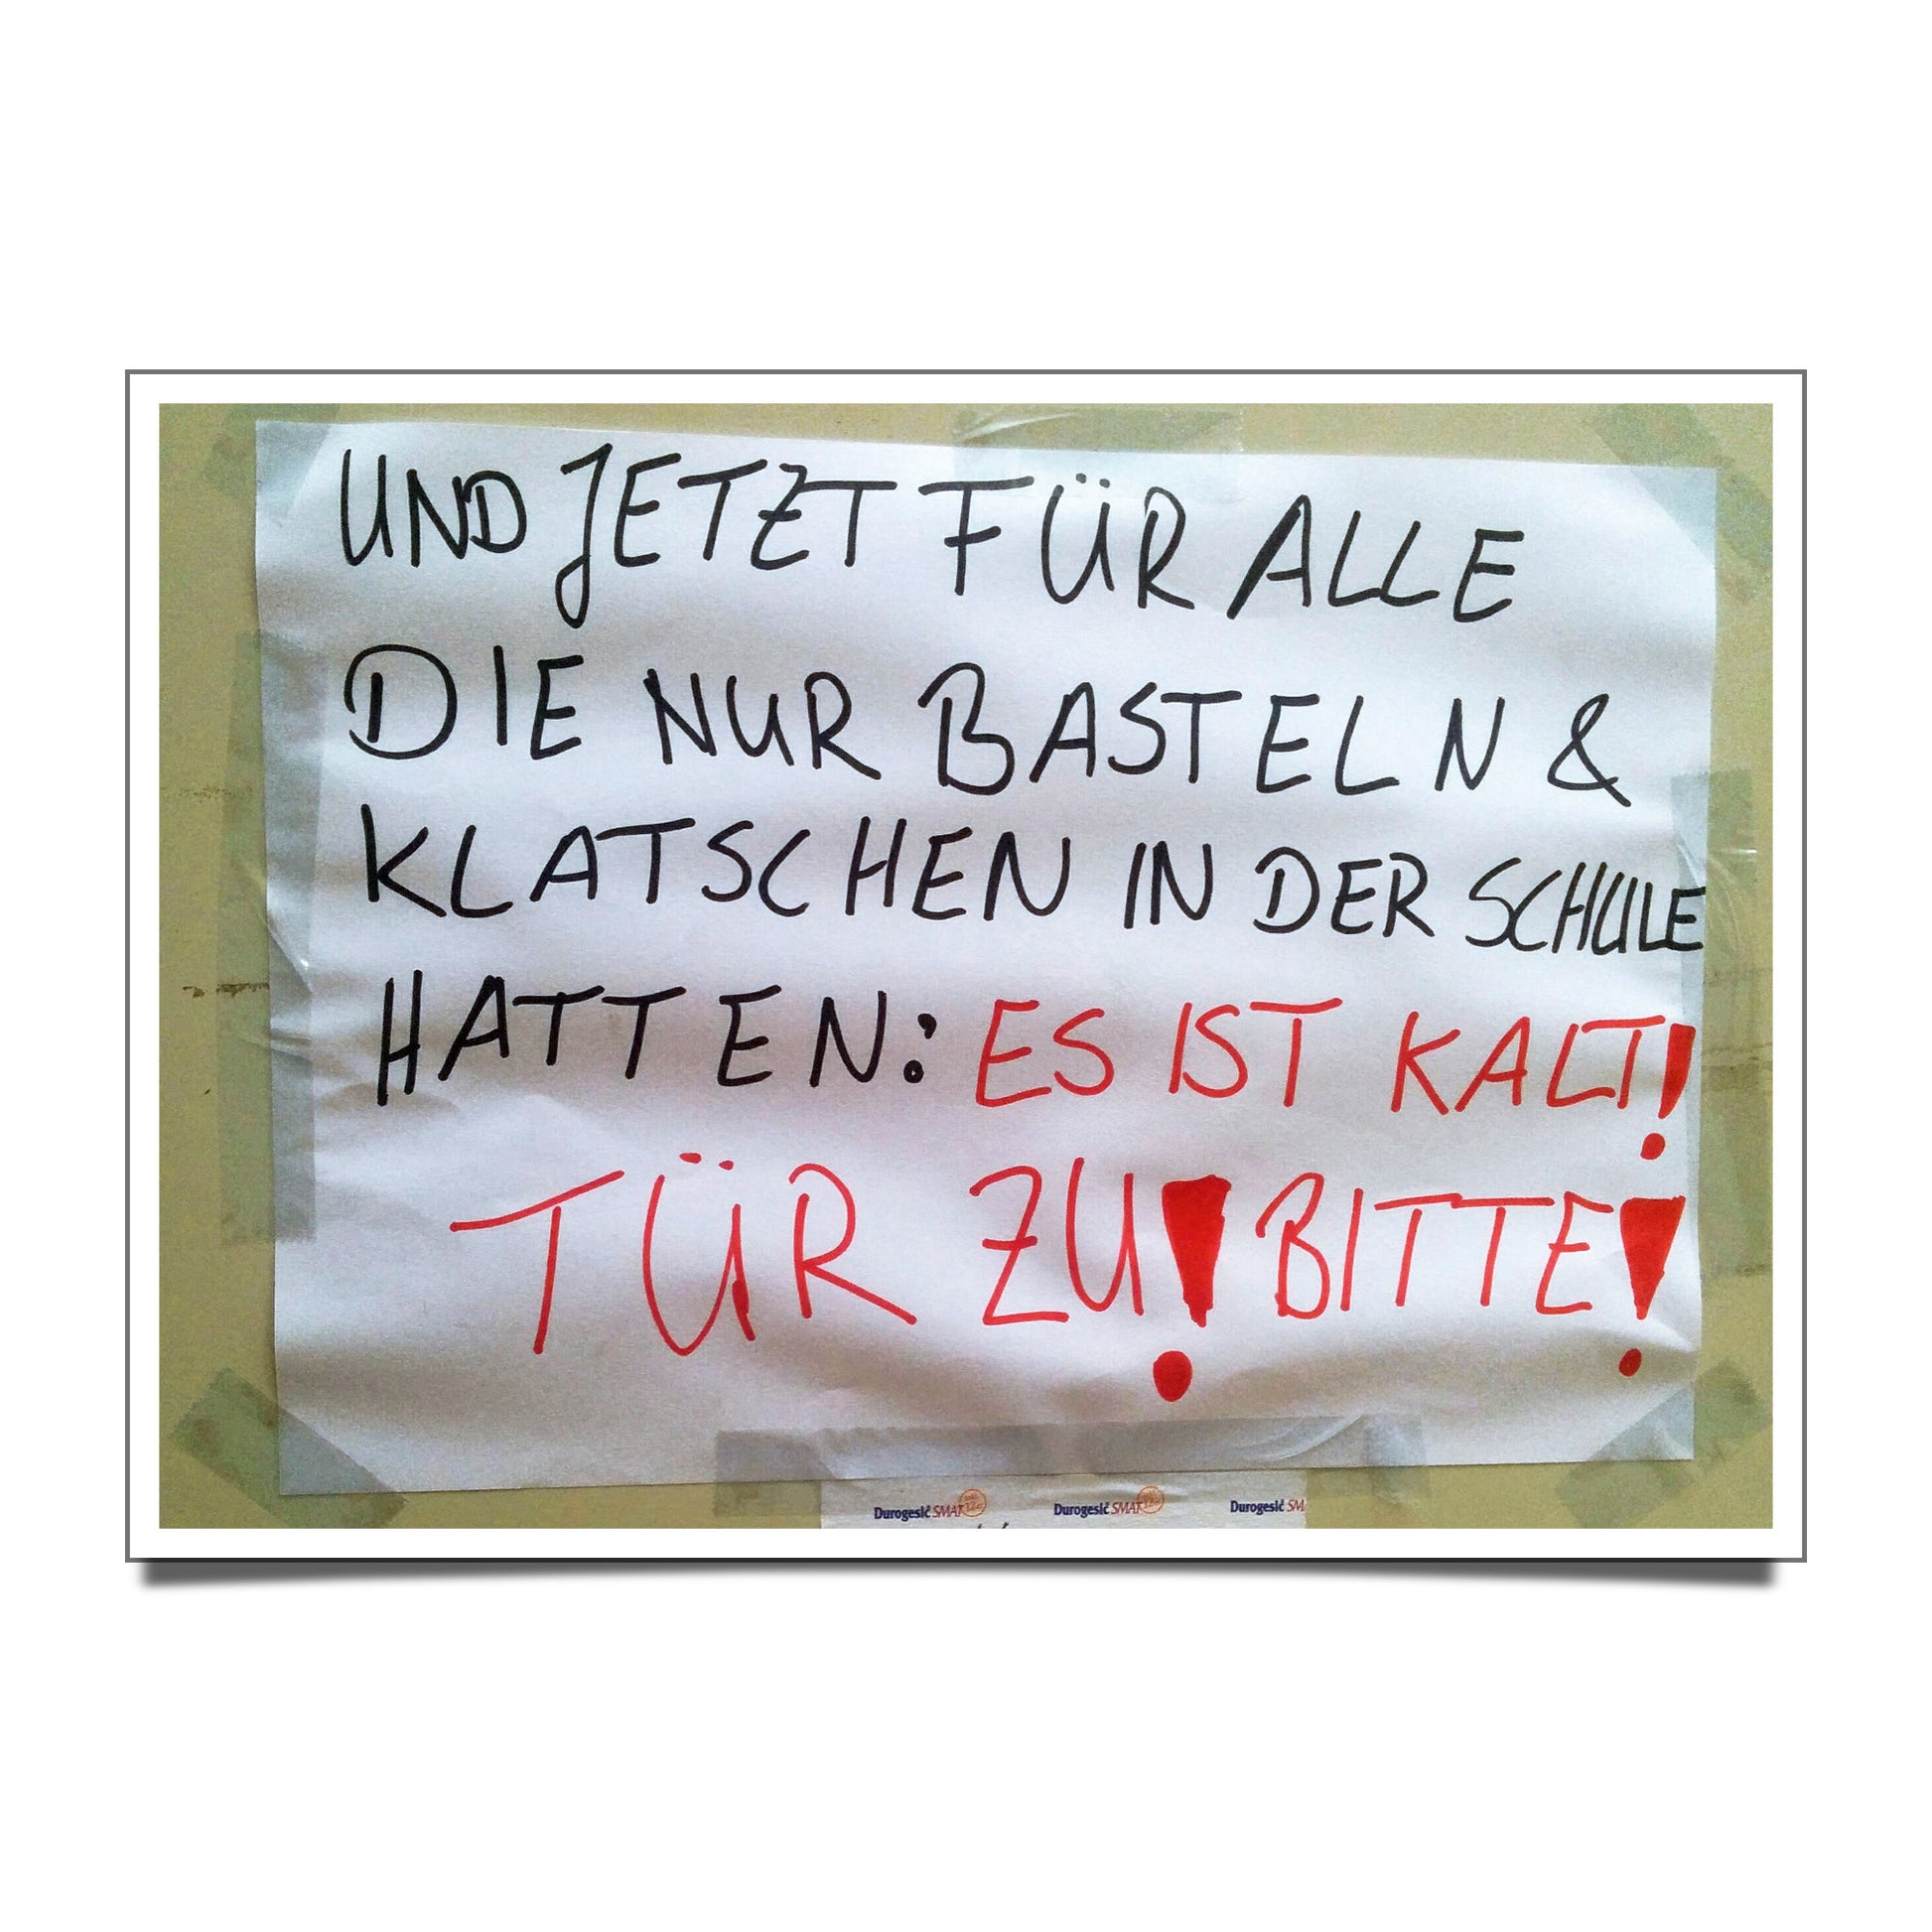 UND JETZT FÜR ALLE
DIE NUR BASTELN &
KLATSCHEN IN DER SCHULE
HATTEN: ES IST KALT!
TÜR ZU! BITTE!
Durogesic SMAT Durogesic SMAT Durogesic SM